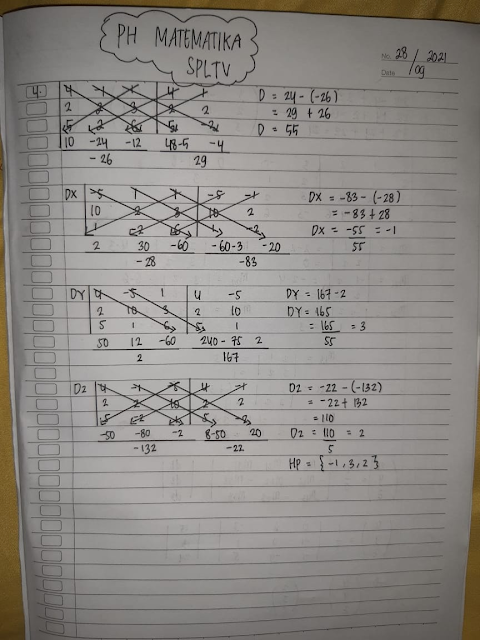 PH MATEMATIKA
SPLTV
No. 28 / 2021
Date / 09
4. 4 -1 1 4 -1 D = 24 - (-26)
2 2 3 2 2 = 29 + 26
5 -2 6 5 -2 D = 55
10 -24 -12 48-5 -4
-26 29
DX -5 -1 1 -5 -1 DX = -83 - (-28)
10 2 3 10 2 = -83 + 28
1 -2 6 1 -2 DX = -55 = -1
2 30 -60 -60-3 -20 55
-28 -83
DY 4 -5 1 4 -5 DY = 167 - 2
2 10 3 2 10 DY = 165
5 1 6 5 1 = 165 = 3
50 12 -60 240 - 75 2 55
2 167
DZ 4 -1 -5 4 -1 DZ = -22 - (-132)
2 2 10 2 2 = -22 + 132
5 -2 1 5 -2 = 110
-50 -80 -2 8-50 20 DZ = 110 = 2
-132 -22 5
HP = {-1, 3, 2}